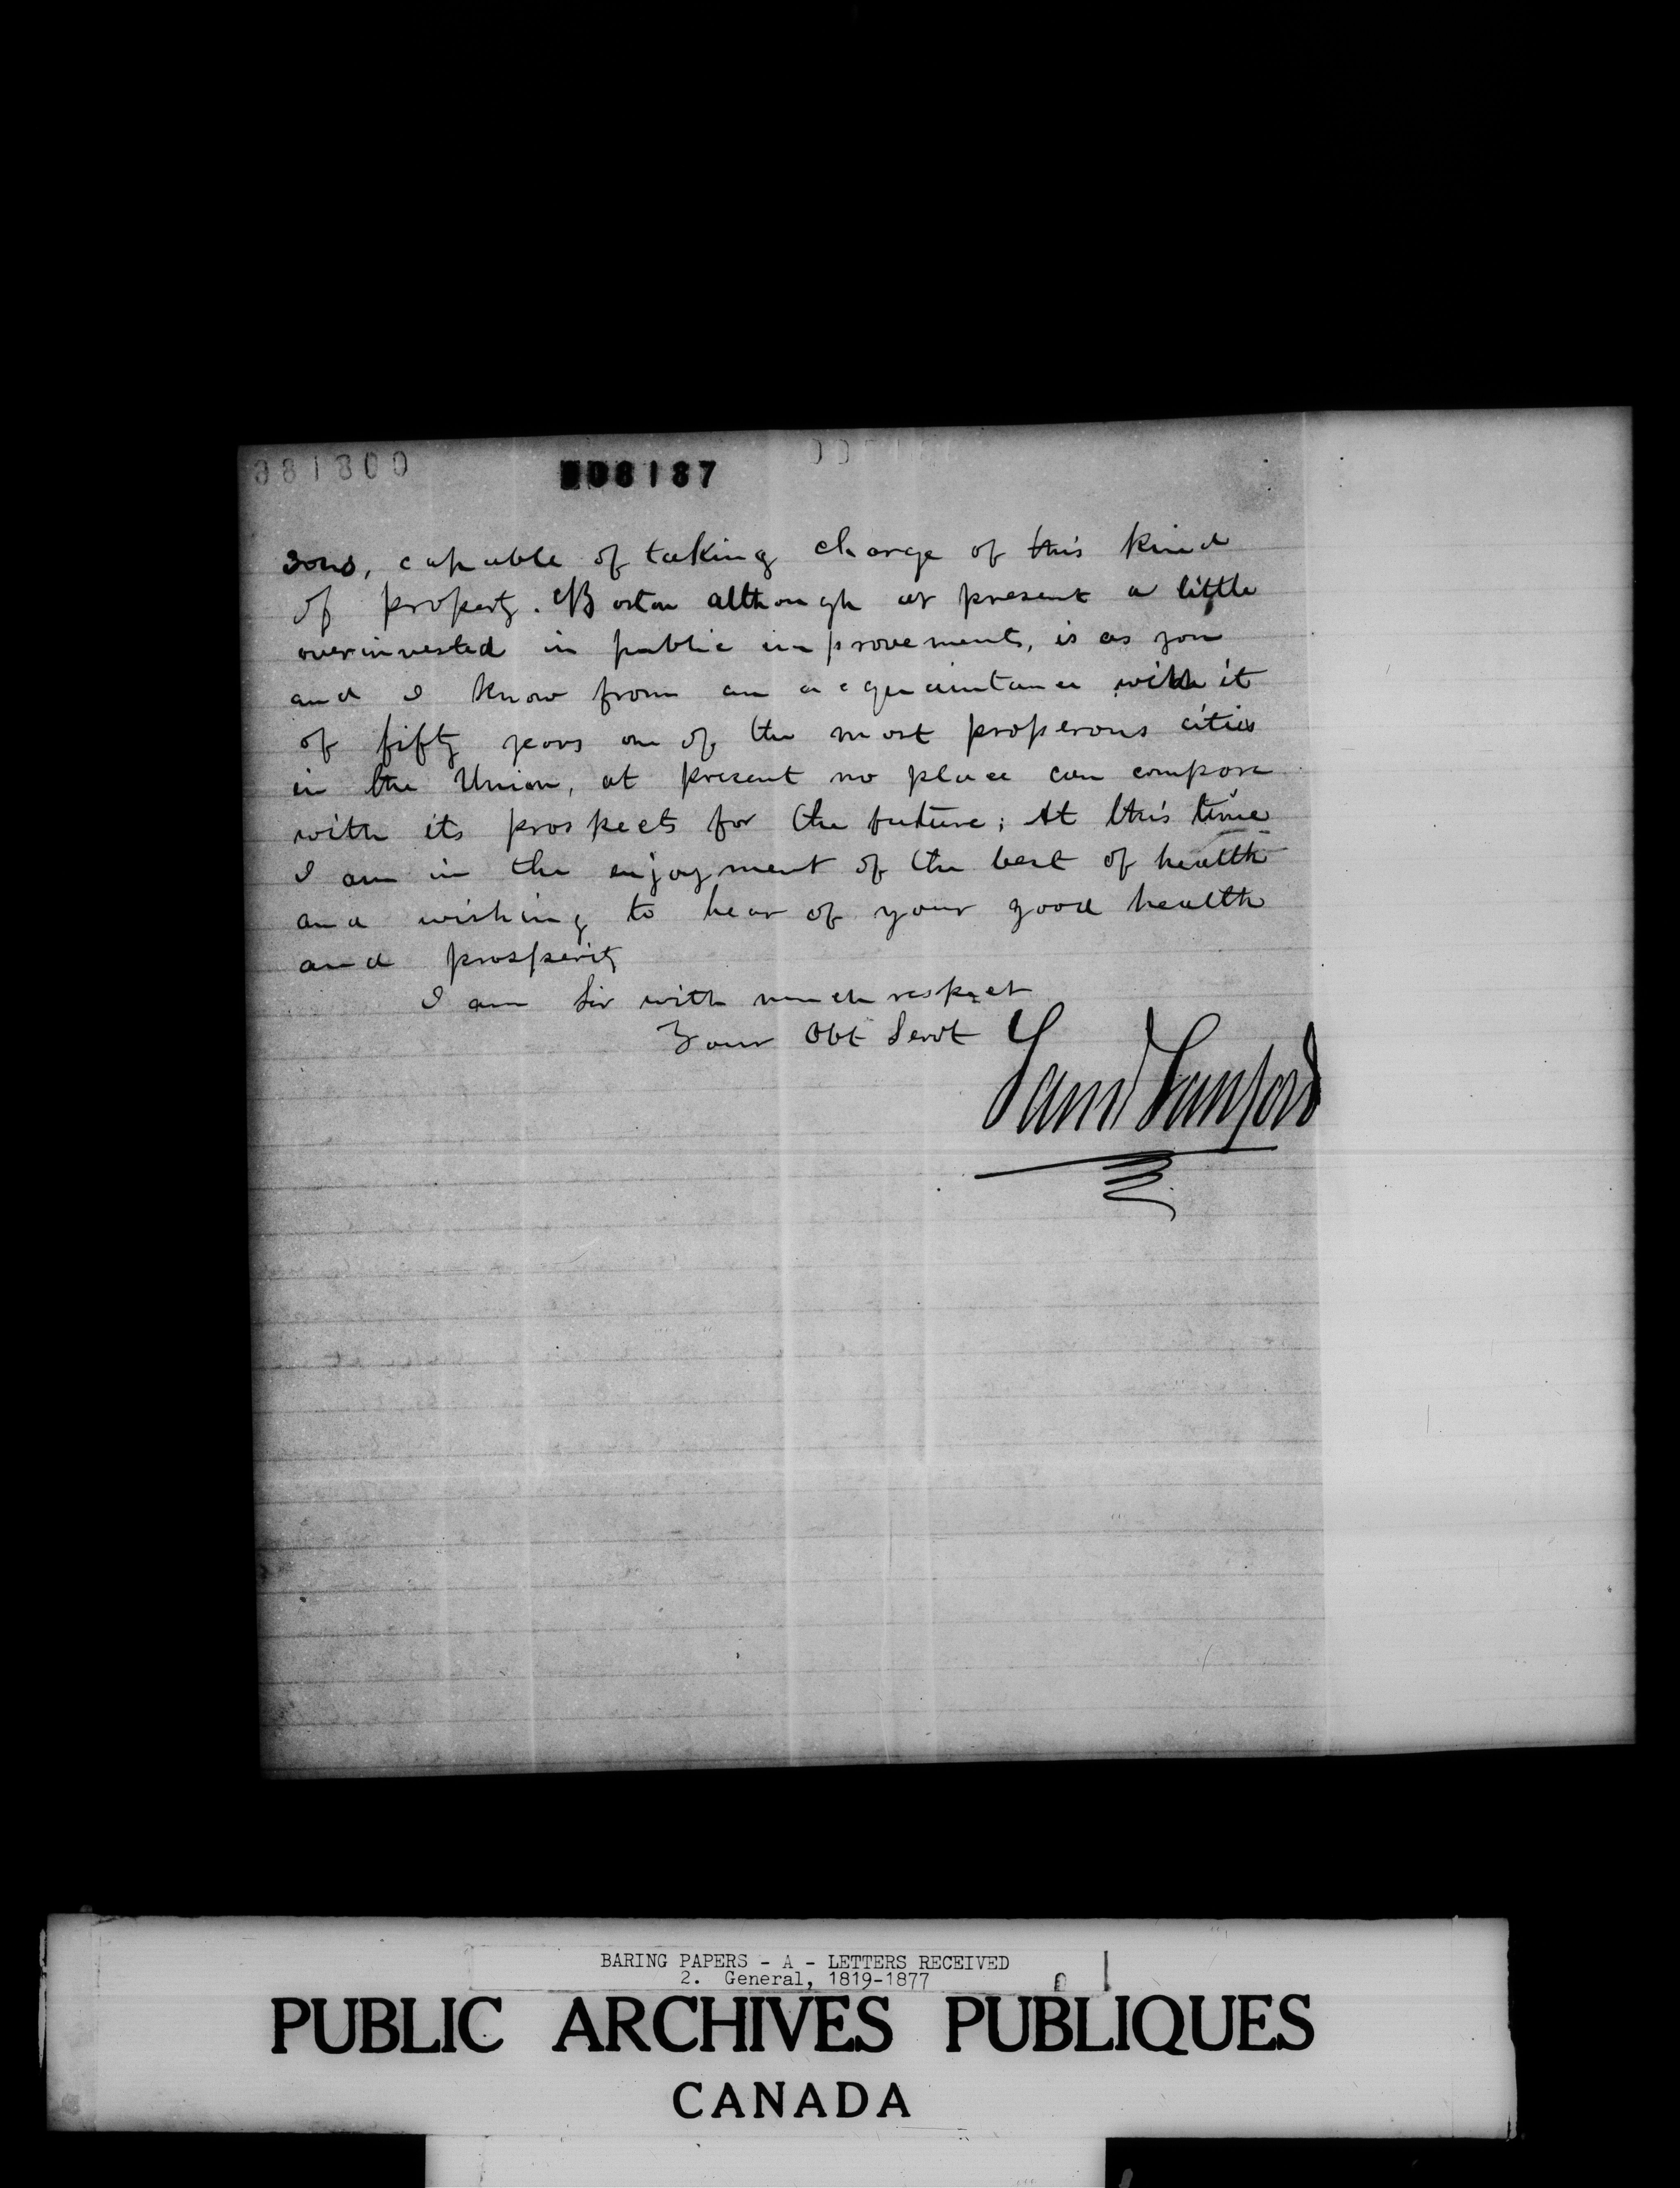 081300
008187
sons, capable of taking charge of this kind
of property. Boston although at present a little
overinvested in public improvements, is as you
and I know from an acquaintance with it
of fifty years one of the most properous cities
in the Union, at present no place can compare
with its prospects for the future; At this time
I am in the enjoyment of the best of health
and wishing to hear of your good health
and prosperity
I am Sir with much respect
Your Obt Servt
Saml Sanford
BARING PAPERS - A - LETTERS RECEIVED
2. General, 1819-1877
PUBLIC ARCHIVES PUBLIQUES
CANADA